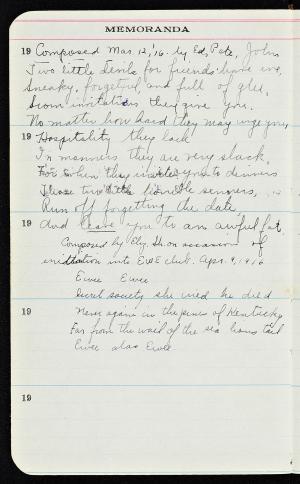 MEMORANDA
19 Composed Mar. 12, '16. by Ed, Pete, John
Two little devils for friends have we,
Sneaky, forgetful and full of glee,
From invitations they give you.
No matter how hard they may urge you,
19 Hospitality they lack
In manners they are very slack.
For when they invite you to dinners
These two little horrible sinners,
Run off forgetting the date
19 And leave you to an awful fate.
Composed by Ely. H. on occasion of
initiation into EWE club. Apr. 9, 1916
Ewee Ewee
Secret society she wed he died
19 Never again in the pines of Kentucky
Far from the wail of the sea lions
Ewee alas Ewee
19